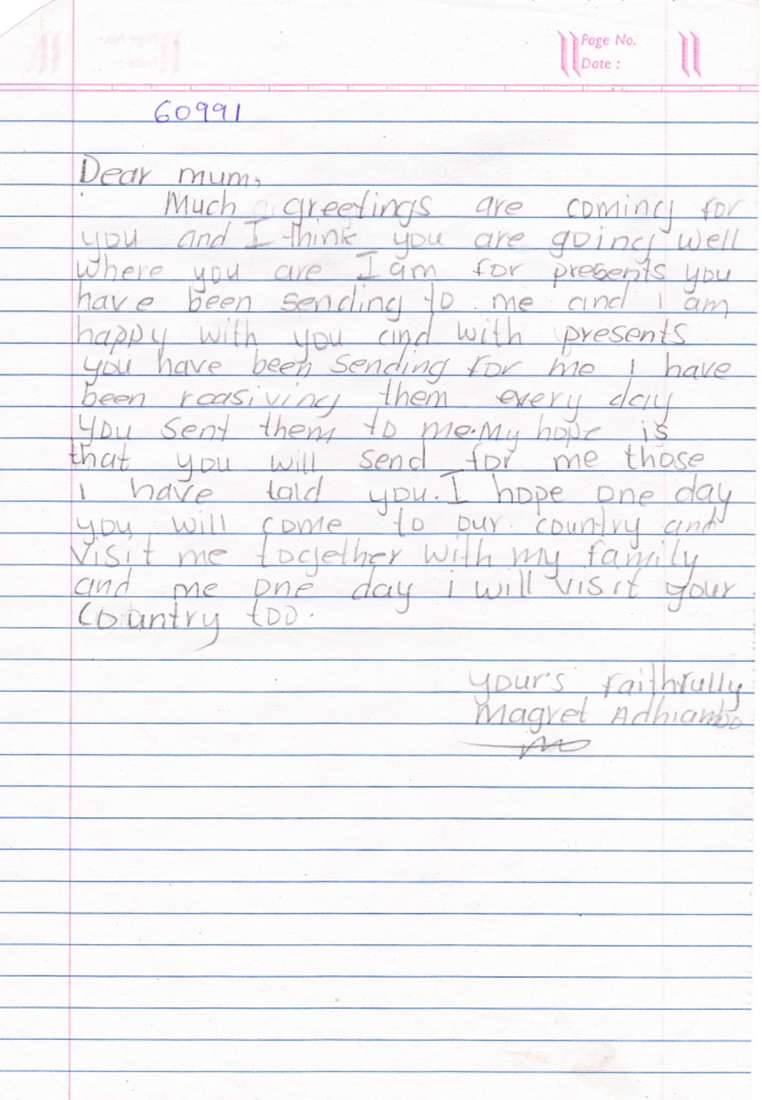 Page No.
Date :
60991
Dear mum,
Much greetings are coming for
you and I think you are going well
where you are I am for presents you
have been sending to me and i am
happy with you and with presents
you have been sending for me i have
been roasiving them every day
you sent them to me. My hope is
that you will send for me those
i have told you. I hope one day
you will come to our country and
visit me together with my family
and me one day i will visit your
country too.
your's faithfully
Magret Adhiambo